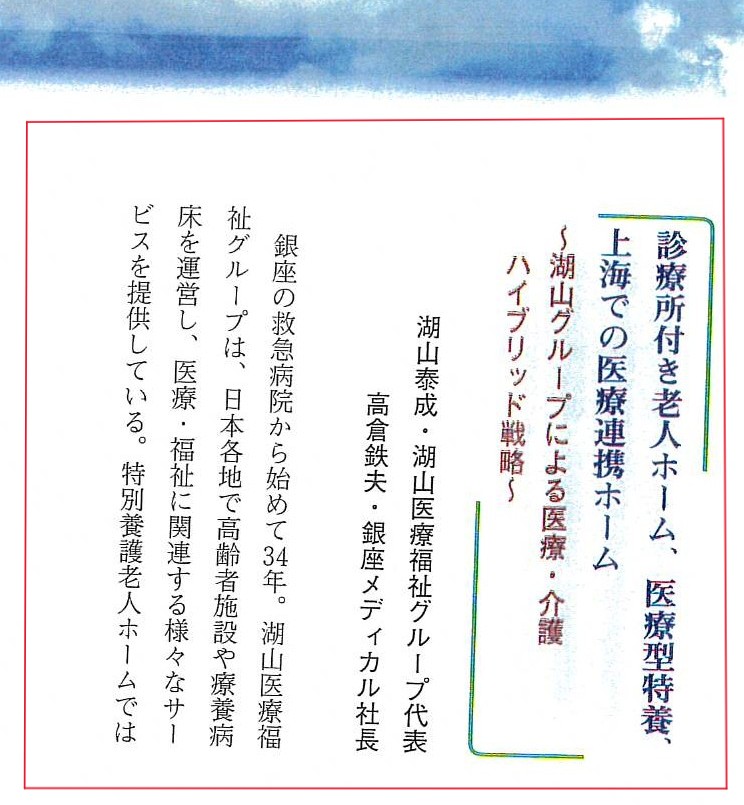 診療所付き老人ホーム、医療型特養、
上海での医療連携ホーム
〜湖山グループによる医療・介護
ハイブリッド戦略〜
湖山泰成・湖山医療福祉グループ代表
高倉鉄夫・銀座メディカル社長
銀座の救急病院から始めて34年。湖山医療福
祉グループは、日本各地で高齢者施設や療養病
床を運営し、医療・福祉に関連する様々なサー
ビスを提供している。特別養護老人ホームでは